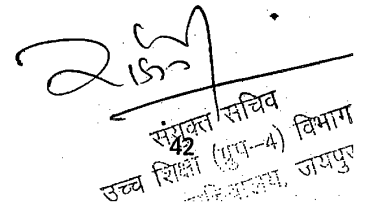 संयुक्त सचिव
42
उच्च शिक्षा (ग्रुप-4) विभाग
जयपुर